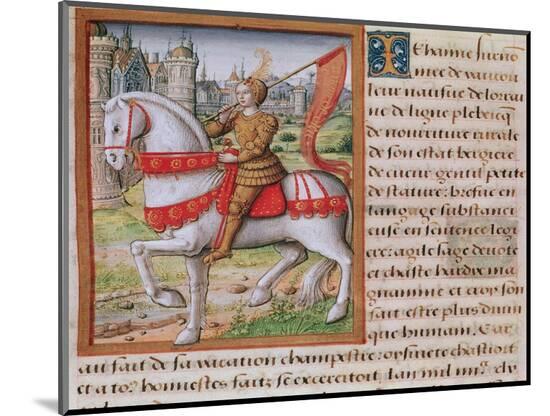 Iehanne surnō
mee de vaucou
leur natifue de lorai
ne de ligne plebeicq
de nourriture rurale
de son estat bergiere
de cueur gentil petite
de stature: brefue en
langage substanci
euse en sentence legi
ere: agile sage deuote
et chaste hardie ma
gnanime et croy son
fait estre plus diuin
que humain. Car
au fait de sa vacation champestre: oysiuete chastioit
et a to9 honnestes faitz se excercitoit Lan mil